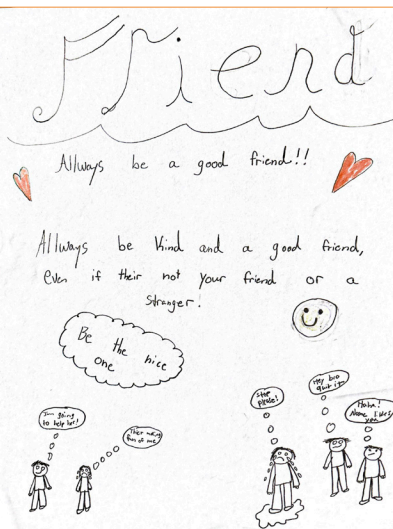 Friend
Allways be a good friend!!
Allways be kind and a good friend,
even if their not your friend or a
stranger!
Be the nice
one
I'm going
to help her!
Ther making
fun of me
Stop
please!
Hey bro
quit it!
Haha!
None likes
you